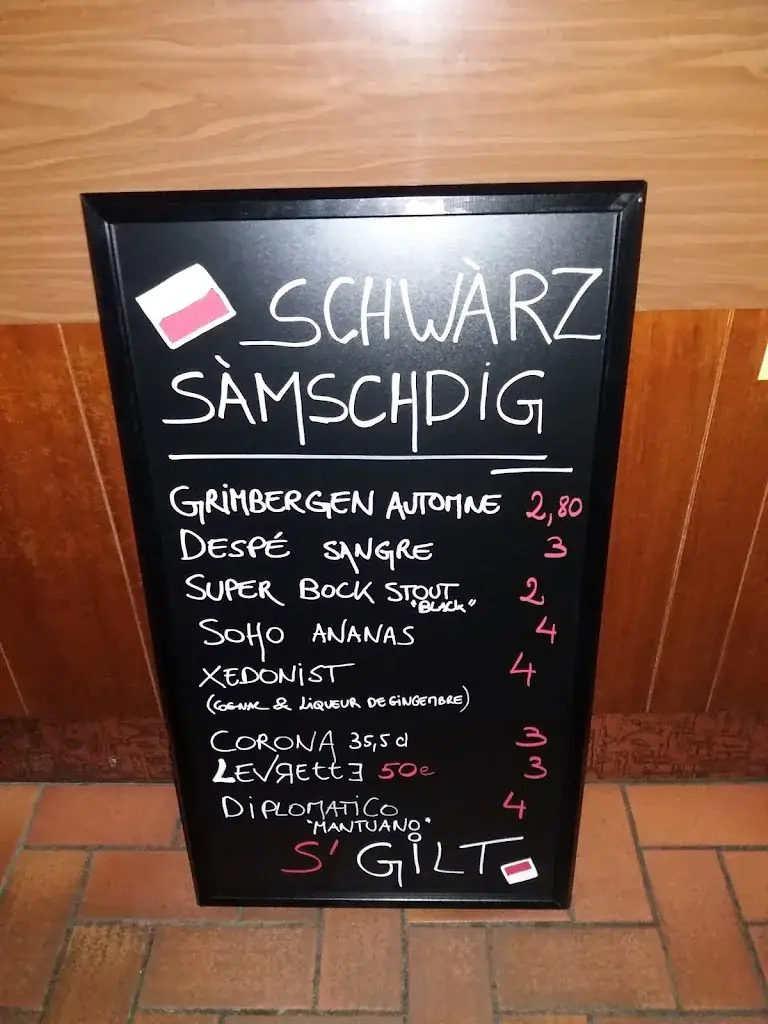 SCHWÀRZ
SÀMSCHDIG
GRIMBERGEN AUTOMNE 2,80
DESPÉ SANGRE 3
SUPER BOCK STOUT 2
"BLACK"
SOHO ANANAS 4
XEDONIST 4
(COGNAC & LIQUEUR DE GINGEMBRE)
CORONA 35,5 cl 3
LEVRETTE 50e 3
DIPLOMATICO 4
"MANTUANO"
S' GILT